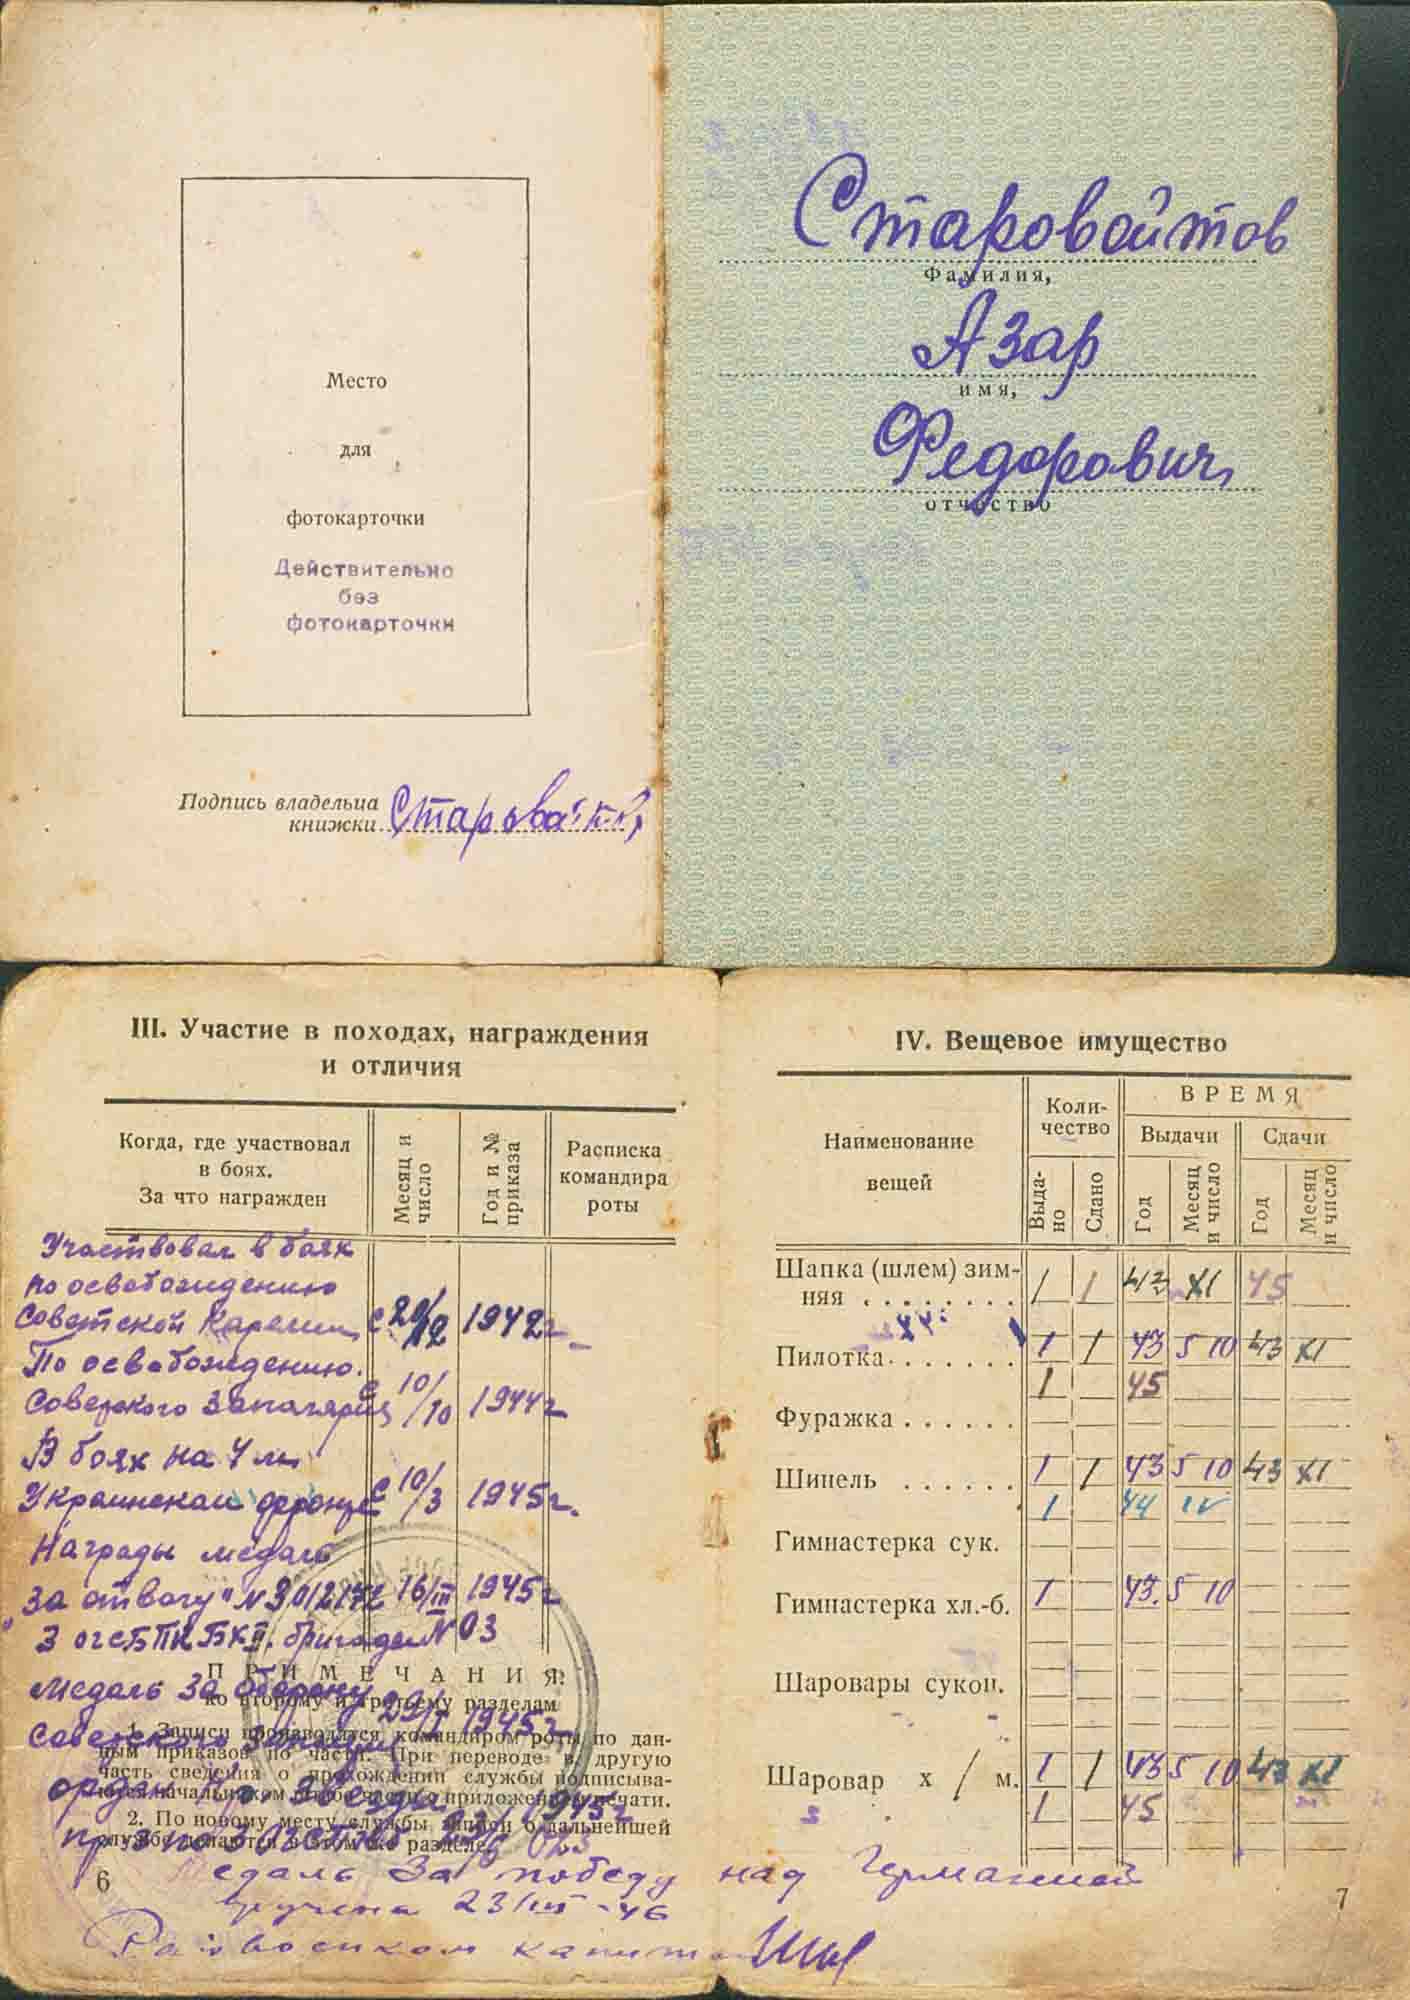 Место
для
фотокарточки
Действительно
без
фотокарточки
Подпись владельца
книжки
Старовойтов
Фамилия,
Азар
имя,
Федорович
отчество
III. Участие в походах, награждения
и отличия
Когда, где участвовал
в боях.
За что награжден
Месяц и
число
Год и №
приказа
Расписка
командира
роты
Участвовал в боях
по освобождению
Советской Карелии с 20/12 1942г
По освобождению
Советского Заполярия с 10/10 1944г
В боях на 4м
Украинском фронте с 10/3 1945г.
Награды медаль
"За отвагу" N 3012172 16/III 1945г
бригады N 03
ПРИМЕЧАНИЯ:
ко второму и третьему разделам
Медаль За оборону
1. Записи производятся командиром роты по дан-
Советского 29/I 1945г
ным приказов по части. При переводе в другую
часть сведения о прохождении службы подписыва-
орден Кр. Звезда 1945г
2. По новому месту службы записи о дальнейшей
службе делаются в этом же разделе.
6
медаль За победу над Германией
вручена 23/III-46
Райвоенком капитан
IV. Вещевое имущество
Наименование
вещей
Коли-
чество
ВРЕМЯ
Выдачи Сдачи
Выда-
но
Сдано
Год
Месяц
и число
Год
Месяц
и число
Шапка (шлем) зим-
няя . . . . . . . . 1 1 43 XI 45
44:
Пилотка . . . . . . . 1 1 43 5 10 43 XI
1 45
Фуражка . . . . . .
Шинель . . . . . . 1 1 43 5 10 43 XI
1 44 IV
Гимнастерка сук.
Гимнастерка хл.-б. 1 43. 5 10
Шаровары сукон.
Шаровар х / м. 1 1 43 5 10 43 XI
1 45
7